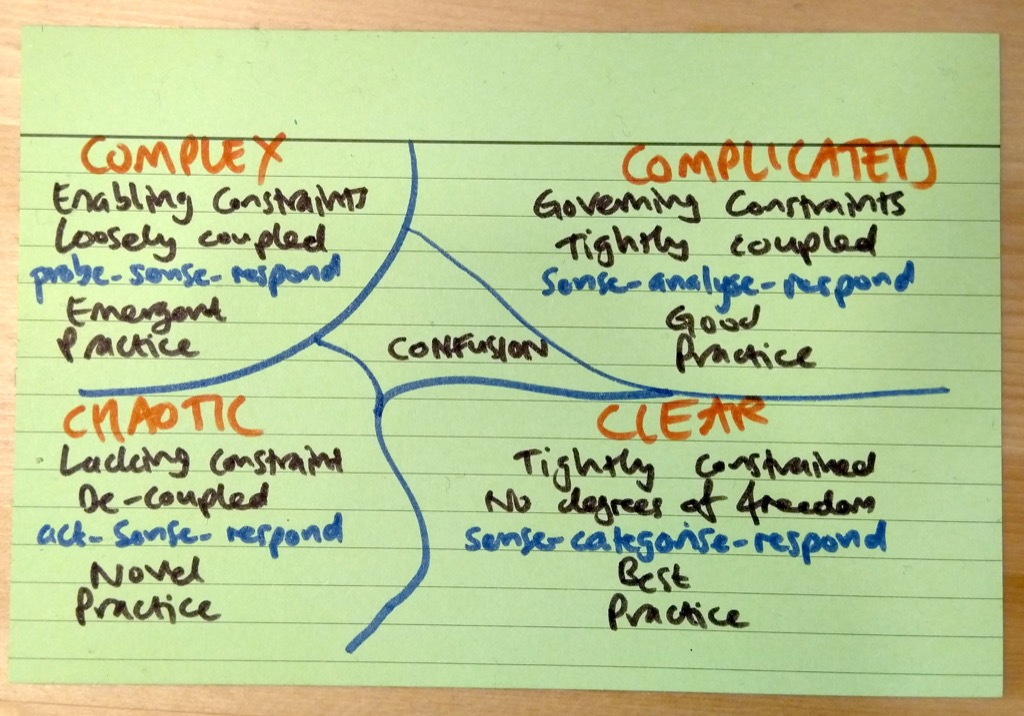 COMPLEX
Enabling Constraints
Loosely coupled
probe-sense-respond
Emergent
Practice
COMPLICATED
Governing Constraints
Tightly coupled
sense-analyse-respond
Good
Practice
CONFUSION
CHAOTIC
Lacking constraint
De-coupled
act-sense-respond
Novel
Practice
CLEAR
Tightly constrained
No degrees of freedom
sense-categorise-respond
Best
Practice